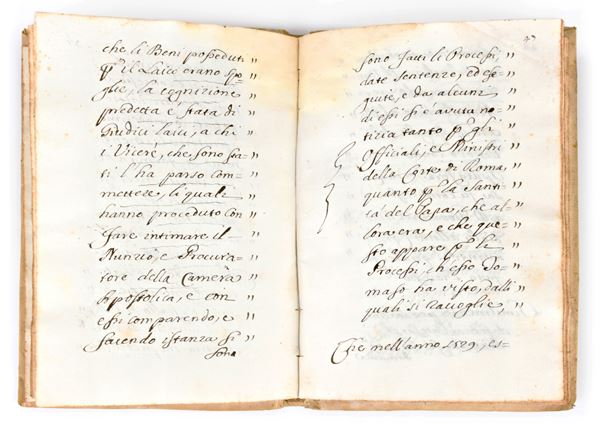 che li Beni posseduti "
p il Laici erano spo= "
glie, la cognizione "
predetta è stata di "
Giudici laici, a chi "
i Viceré, che sono sta= "
ti l'ha parso com= "
mettere, li quali "
hanno proceduto con "
fare intimare il "
Nunzio, e Procura= "
tore della Camera "
Apostolica, e con "
essi comparendo, e "
facendo istanza si "
sono
47
sono fatti li Processi, "
date Sentenze, ed ese= "
guite, e da alcuni "
di essi si è avuta no= "
tizia tanto p gli "
Officiali, e Ministri "
della Corte di Roma, "
quanto p la Santi= "
tà del Papa, che al= "
lora era, e che que= "
sto appare p li "
Processi, ch'esso To= "
maso ha visto, dalli "
quali si raccoglie, "
Che nell'anno 1529., es=